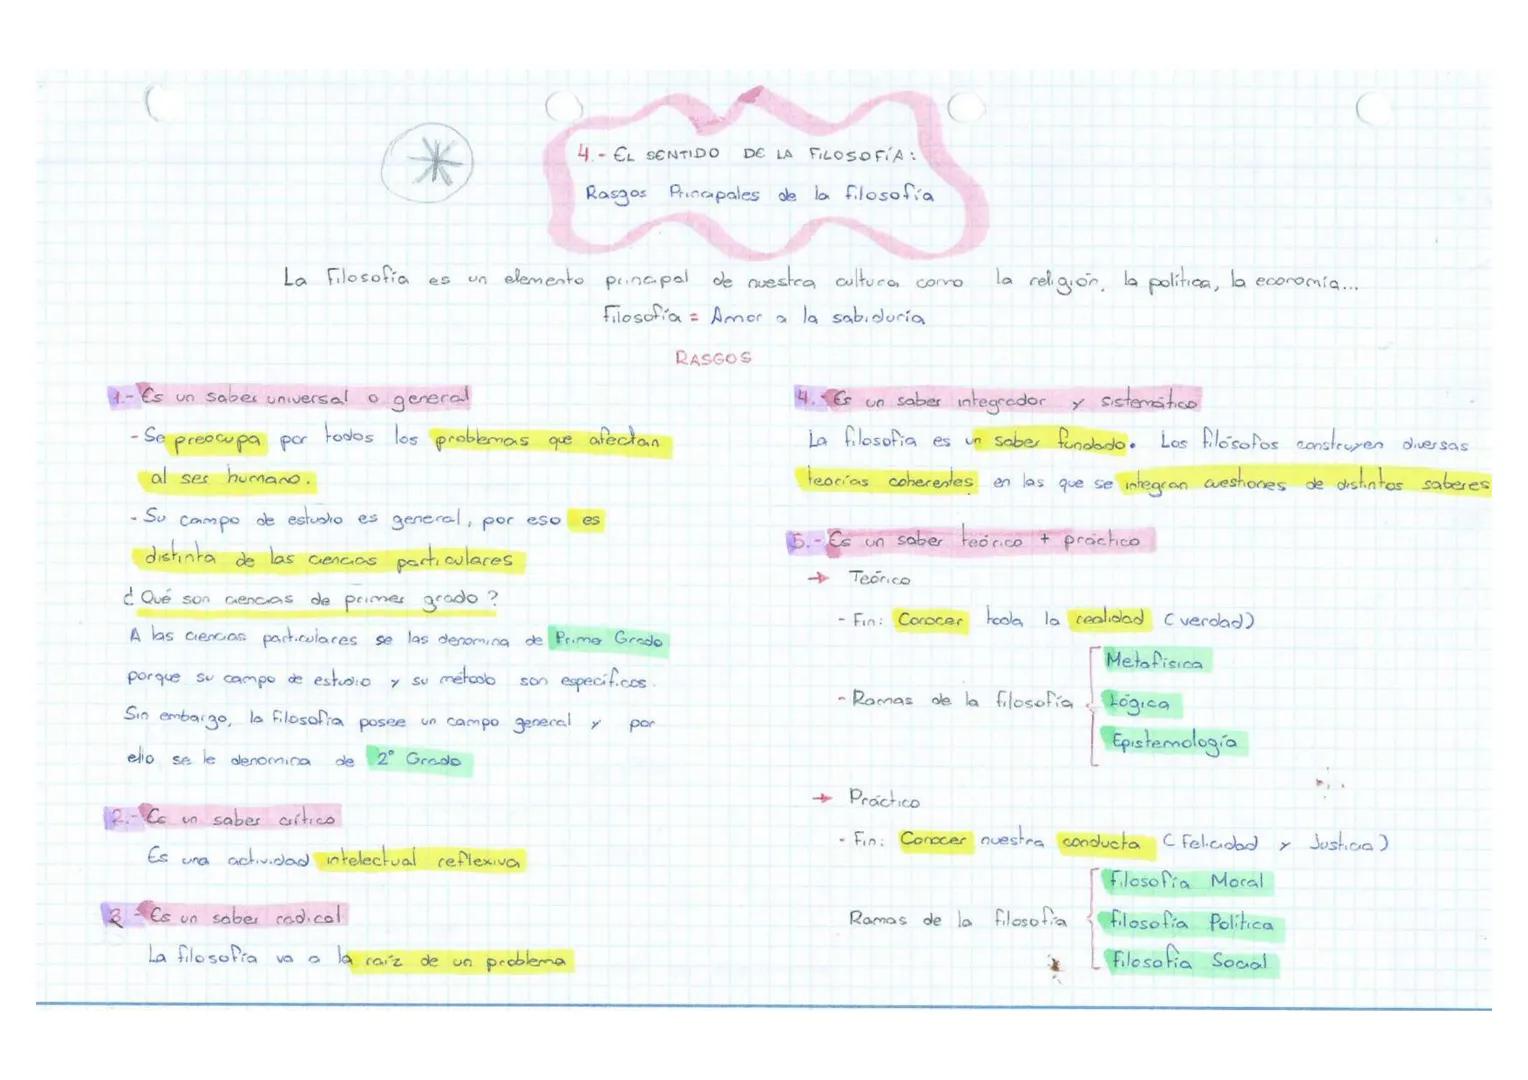 4.- EL SENTIDO DE LA FILOSOFÍA:
Rasgos Principales de la filosofía
La Filosofía es un elemento principal de nuestra cultura como la religión, la política, la economía...
Filosofía = Amor a la sabiduría
RASGOS
1.- Es un saber universal o general
- Se preocupa por todos los problemas que afectan
al ser humano.
- Su campo de estudio es general, por eso es
distinta de las ciencias particulares
¿Qué son ciencias de primer grado?
A las ciencias particulares se las denomina de Primer Grado
porque su campo de estudio y su método son específicos.
Sin embargo, la Filosofía posee un campo general y por
ello se le denomina de 2º Grado
2.- Es un saber crítico
Es una actividad intelectual reflexiva
3.- Es un saber radical
La filosofía va a la raíz de un problema
4.- Es un saber integrador y sistemático
La filosofía es un saber fundado. Los filósofos construyen diversas
teorías coherentes en las que se integran cuestiones de distintos saberes
5.- Es un saber teórico + práctico
→ Teórico
- Fin: Conocer toda la realidad (verdad)
- Ramas de la filosofía
Metafísica
Lógica
Epistemología
→ Práctico
- Fin: Conocer nuestra conducta (Felicidad y Justicia)
Ramas de la filosofía
filosofía Moral
filosofía Política
filosofía Social